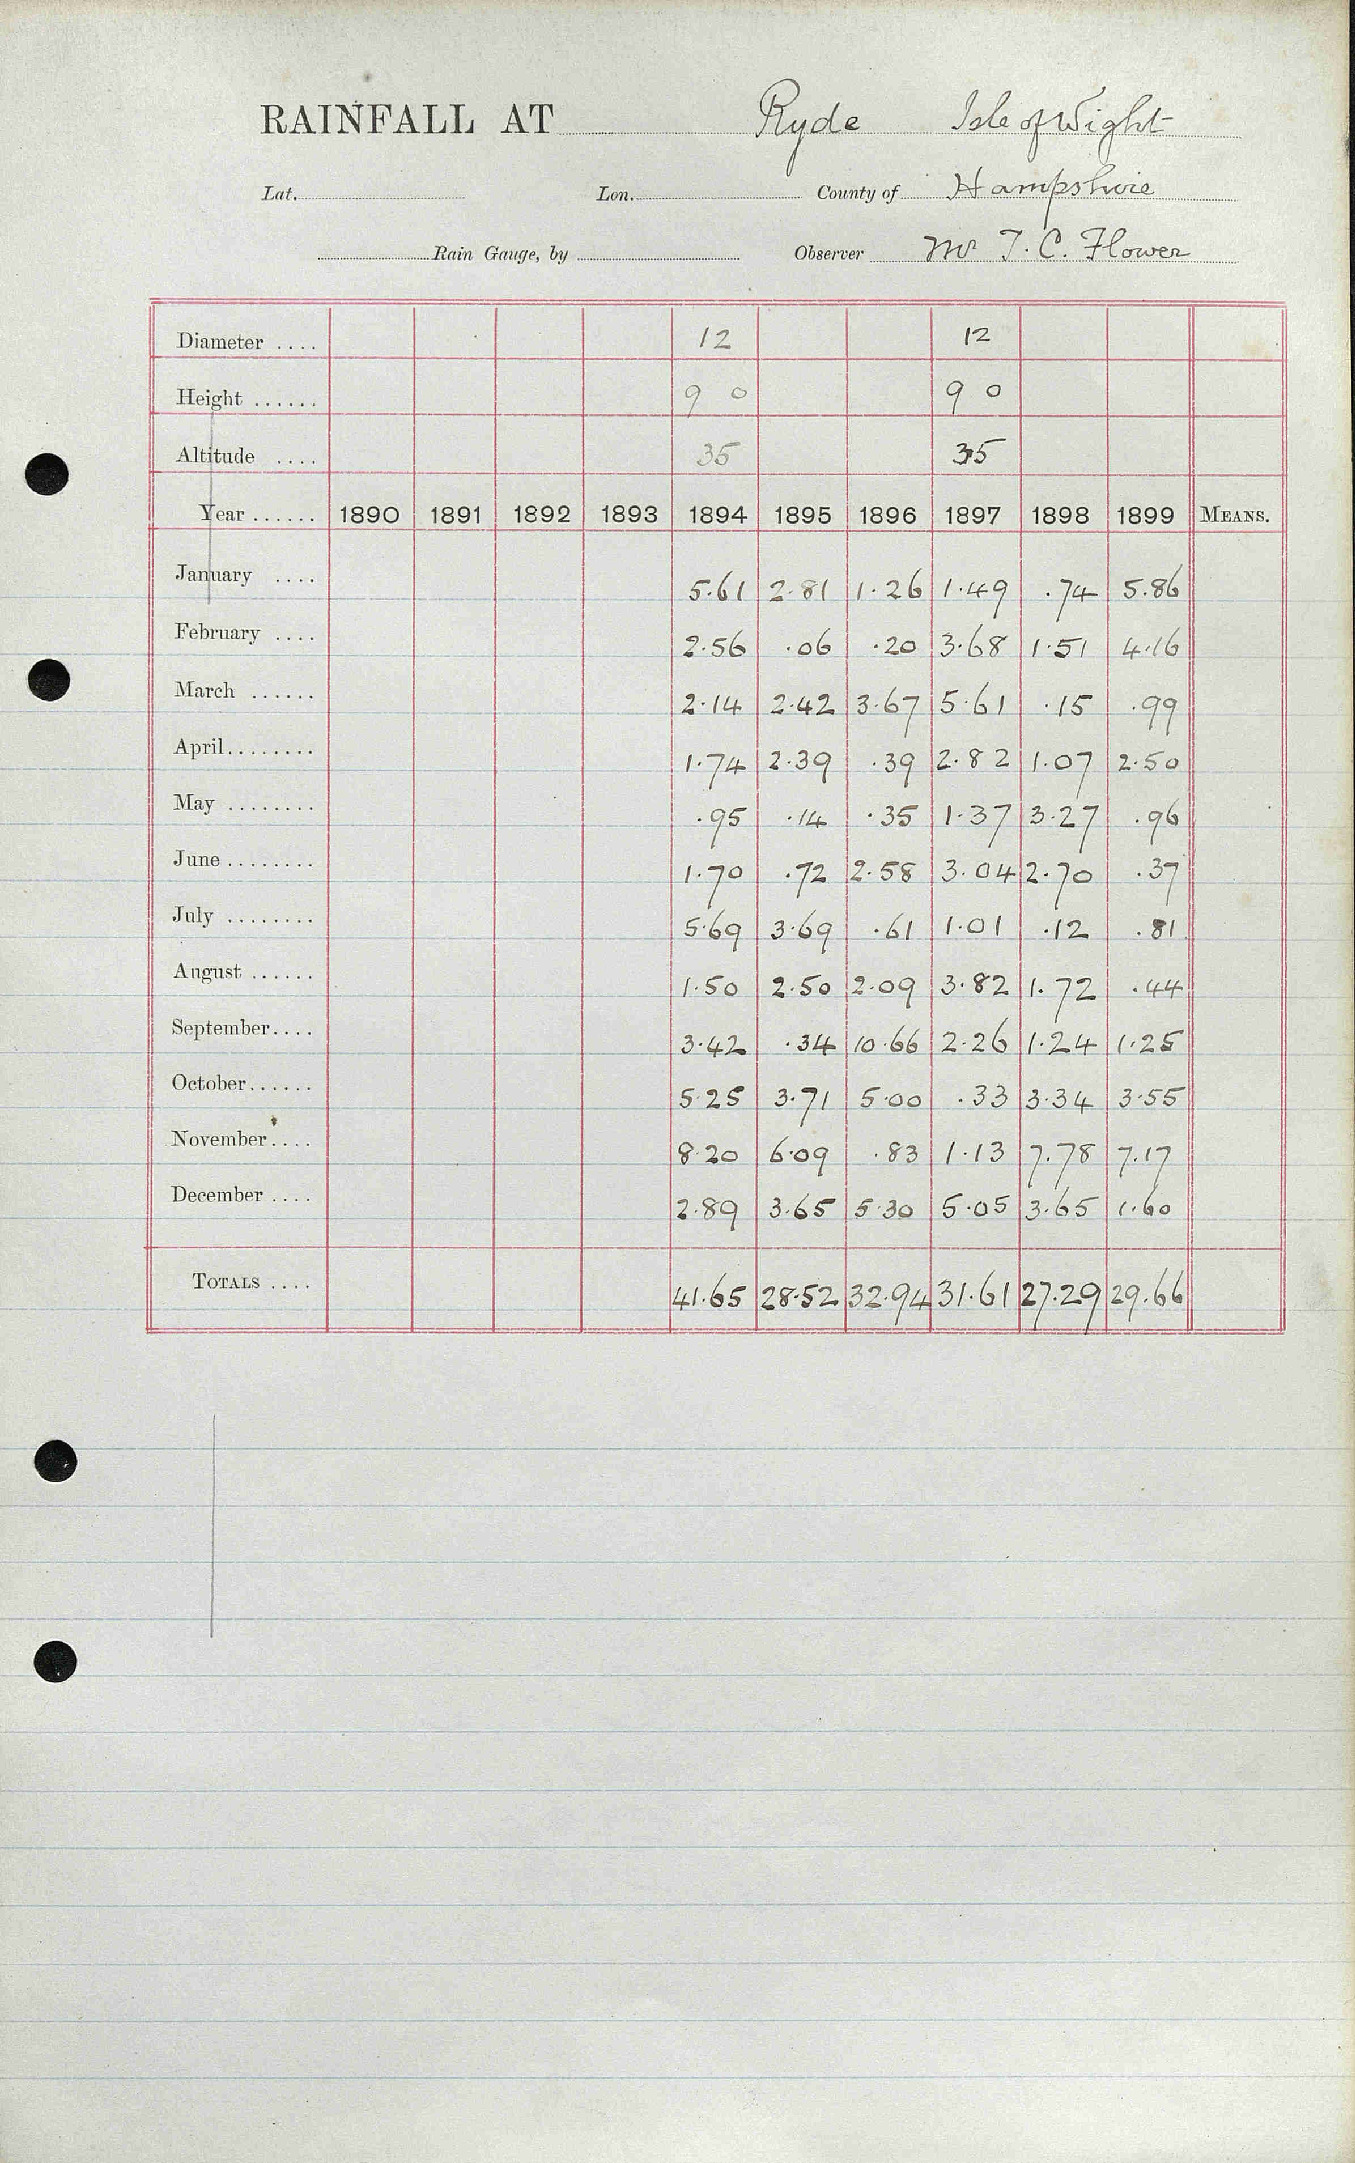 RAINFALL AT Ryde Isle of Wight
Lat. Lon. County of Hampshire
Rain Gauge, by Observer Mr T. C. Flower
Diameter .... 12 12
Height ...... 9 0 9 0
Altitude .... 35 35
Year ...... 1890 1891 1892 1893 1894 1895 1896 1897 1898 1899 MEANS.
January .... 5.61 2.81 1.26 1.49 .74 5.86
February .... 2.56 .06 .20 3.68 1.51 4.16
March ...... 2.14 2.42 3.67 5.61 .15 .99
April........ 1.74 2.39 .39 2.82 1.07 2.50
May ........ .95 .14 .35 1.37 3.27 .96
June ........ 1.70 .72 2.58 3.04 2.70 .37
July ........ 5.69 3.69 .61 1.01 .12 .81
August ...... 1.50 2.50 2.09 3.82 1.72 .44
September.... 3.42 .34 10.66 2.26 1.24 1.25
October...... 5.25 3.71 5.00 .33 3.34 3.55
November.... 8.20 6.09 .83 1.13 7.78 7.17
December .... 2.89 3.65 5.30 5.05 3.65 1.60
TOTALS .... 41.65 28.52 32.94 31.61 27.29 29.66